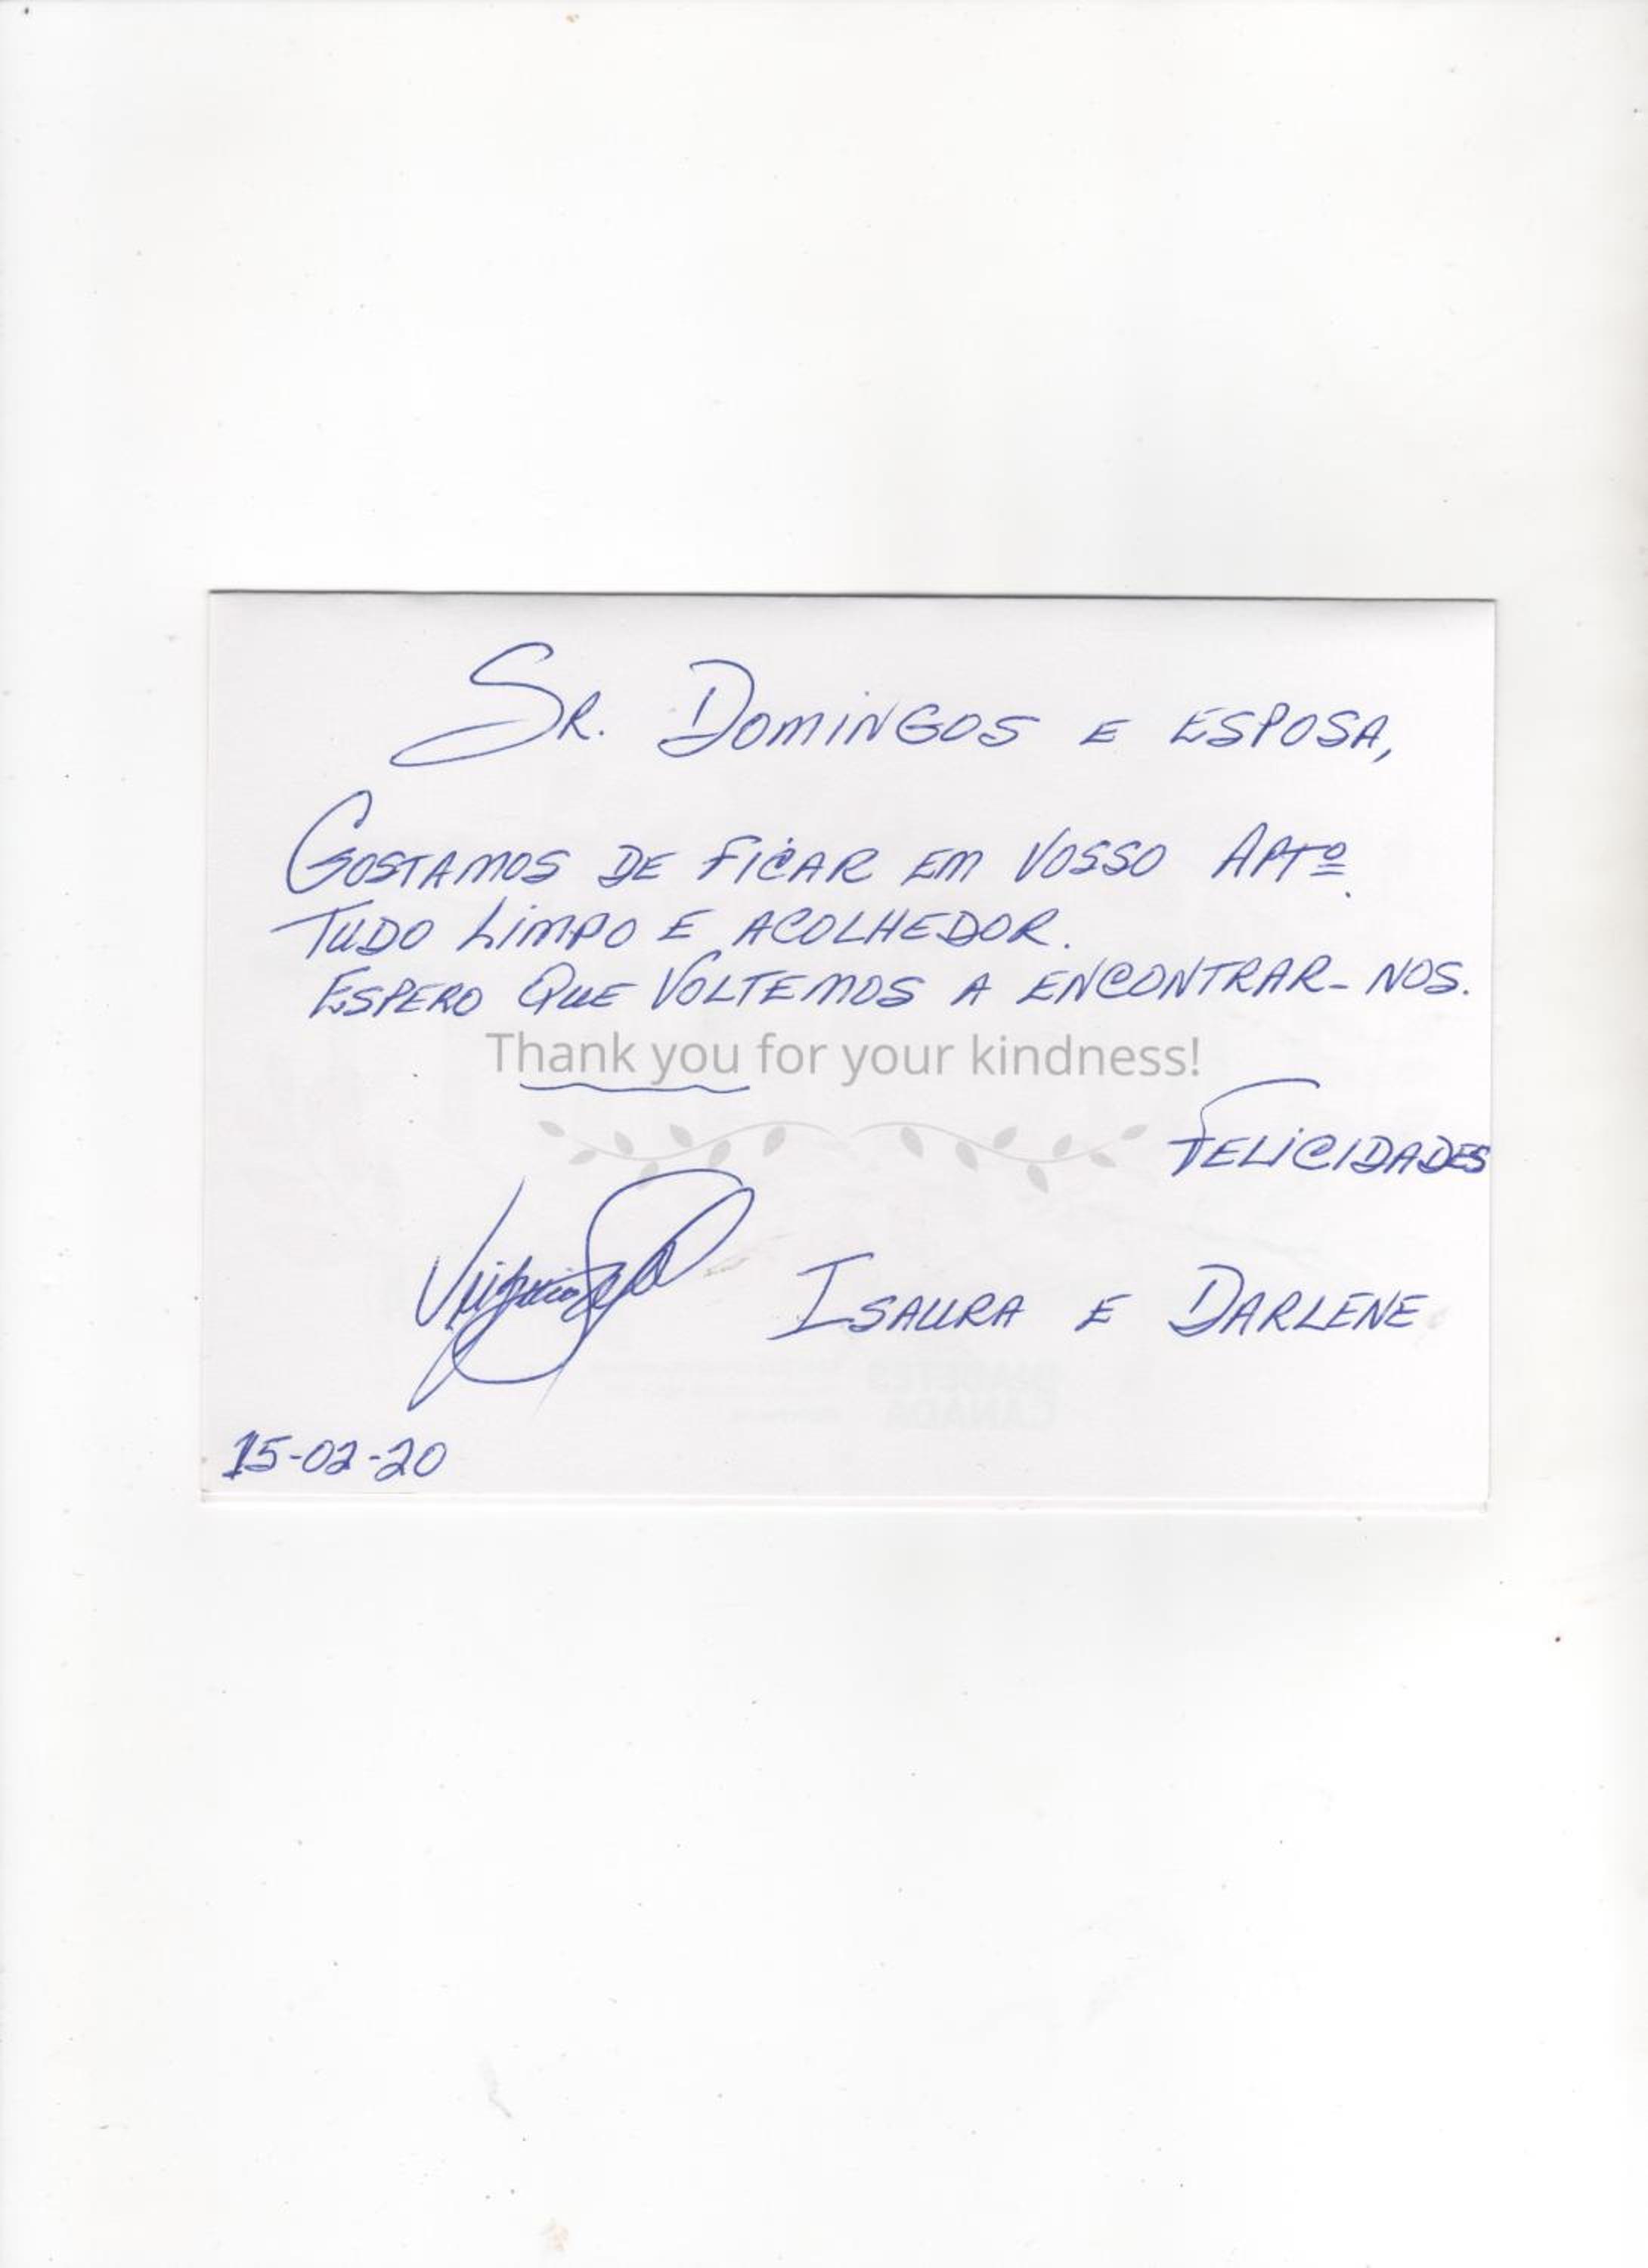 SR. DOMINGOS E ESPOSA,
GOSTAMOS DE FICAR EM VOSSO APTº.
TUDO LIMPO E ACOLHEDOR.
ESPERO QUE VOLTEMOS A ENCONTRAR-NOS.
Thank you for your kindness!
FELICIDADES
ISAURA E DARLENE
15-02-20